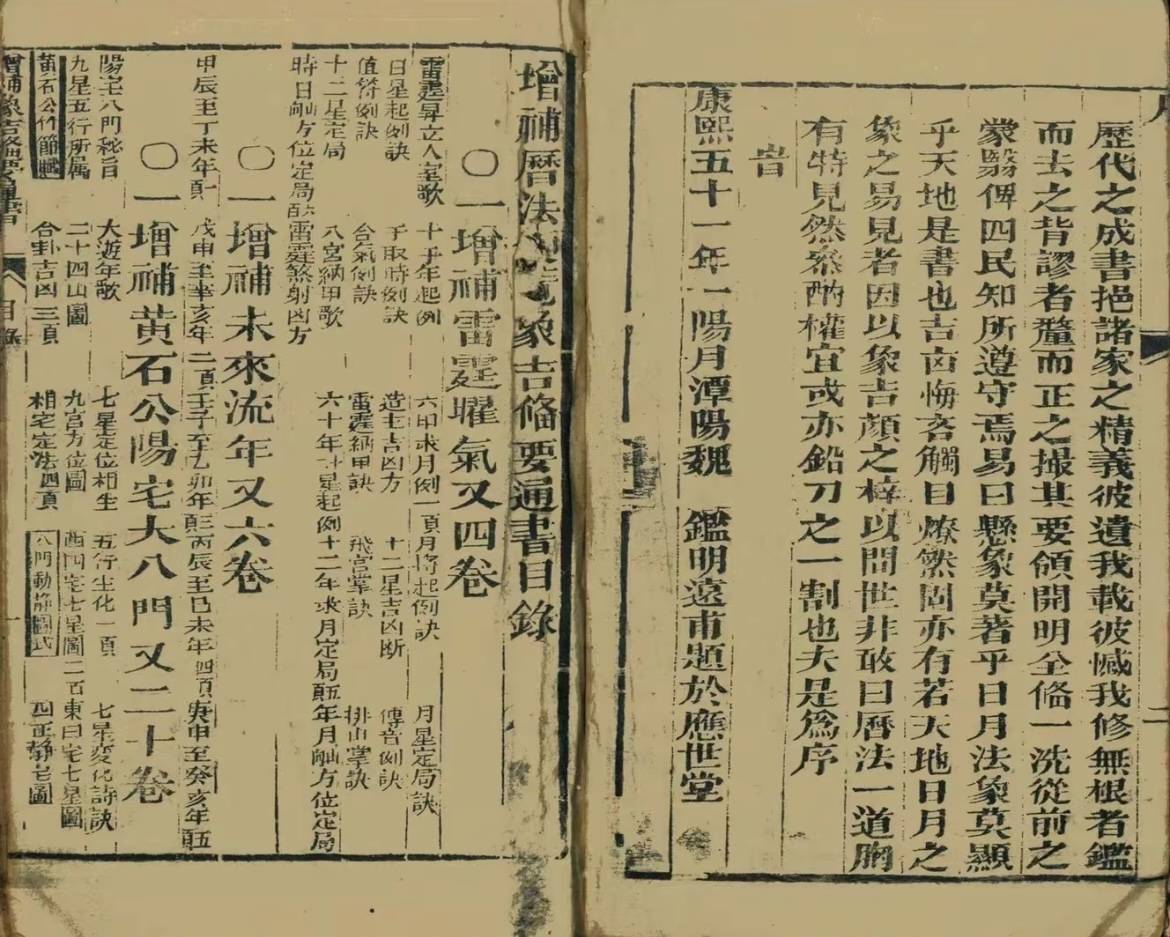 序
歷代之成書挹諸家之精義彼遺我載彼憾我修無根者鑑
而去之背謬者釐而正之撮其要領開明全俻一洗從前之
蒙翳俾四民知所遵守焉易曰懸象莫著乎日月法象莫顯
乎天地是書也吉卤悔吝觸目燎然固亦有若天地日月之
象之易見者因以象吉顔之梓以問世非敢曰曆法一道胸
有特見然叅酌權宜或亦鉛刀之一割也夫是爲序
旹
康熙五十一年一陽月潭陽魏 鑑明遠甫題於應世堂
二
增補曆法象吉俻要通書目錄
〇一增補雷霆曜氣又四卷
雷霆昇立人室歌 十千年起例 六甲求月例一頁 月將起例訣 月星定局訣
日星起例訣 千取時例訣 造主吉凶方 十二星吉凶断 傳音例訣
值符例訣 合氣例訣 雷霆納甲訣 飛宮掌訣 排山掌訣
十二星定局 八宮納甲歌 六十年星起例 十二年求月定局 年月方位定局
時日方位定局 雷霆煞射凶方
〇一增補未來流年又六卷
甲辰至丁未年一頁 戊申至辛亥年二頁 壬子至乙卯年三頁 丙辰至己未年四頁 庚申至癸亥年五頁
〇一增補黄石公陽宅大八門又二十卷
陽宅八門秘旨 大遊年歌 七星定位相生 五行生化一頁 七星変化詩訣
九星五行所属 二十四山圖 九宮方位圖 西四宅七星圖二頁 東四宅七星圖
黄石公竹節賦 合卦吉凶三頁 相宅定法四頁 八門動静圖式 四正静宅圖
增補象吉俻要通書
目錄
一